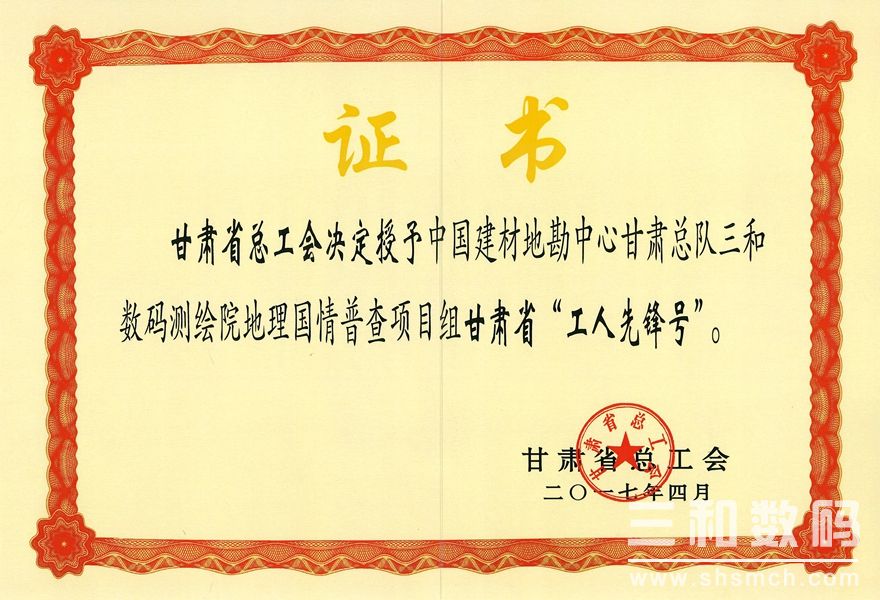 证书
甘肃省总工会决定授予中国建材地勘中心甘肃总队三和
数码测绘院地理国情普查项目组甘肃省“工人先锋号”。
甘肃省总工会
甘肃省总工会
二〇一七年四月
三和数码
www.shsmch.com